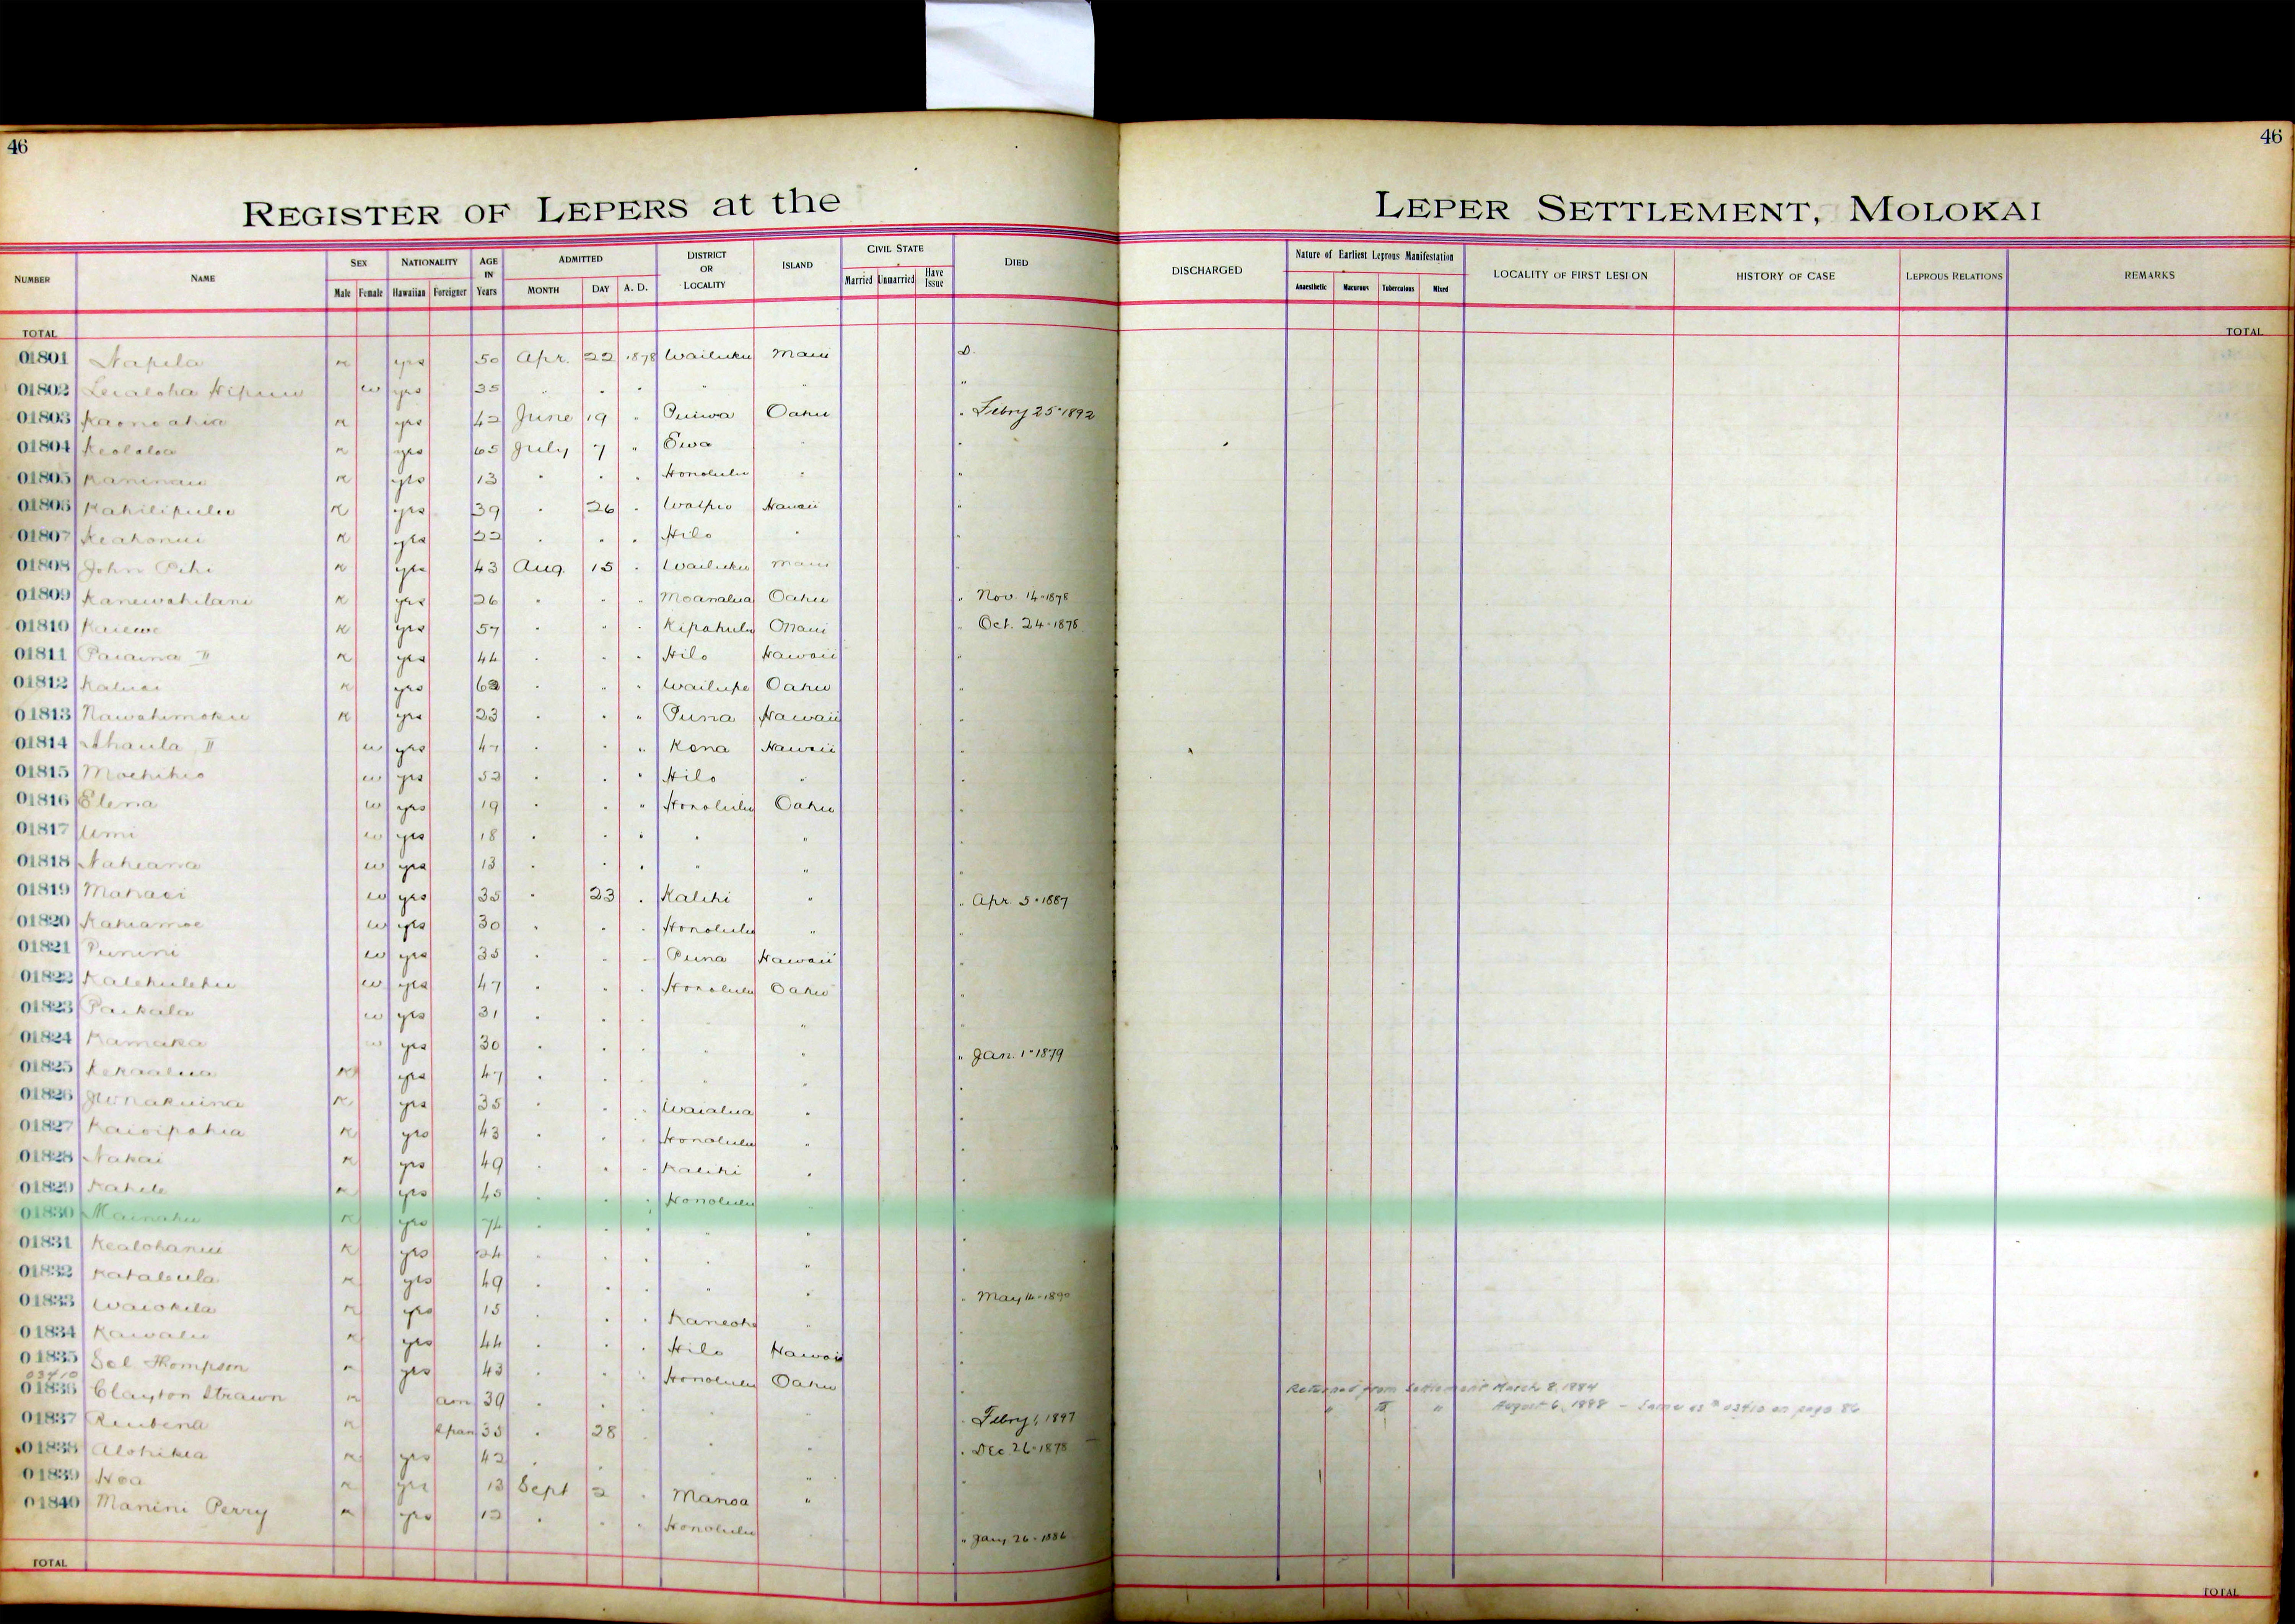 46
46
REGISTER OF LEPERS at the LEPER SETTLEMENT, MOLOKAI
NUMBER NAME SEX NATIONALITY AGE IN Years ADMITTED DISTRICT OR LOCALITY ISLAND CIVIL STATE DIED DISCHARGED Nature of Earliest Leprous Manifestation LOCALITY OF FIRST LESION HISTORY OF CASE LEPROUS RELATIONS REMARKS
Male Female Hawaiian Foreigner MONTH DAY A. D. Married Unmarried Have Issue Anaesthetic Macurous Tuberculous Mixed
TOTAL TOTAL
01801 Napela m yes 50 Apr. 22 1878 Wailuku Maui D.
01802 Lealoha w yes 35 " " " " " "
01803 Kaonoahia m yes 42 June 19 " Puiwa Oahu " Febry 25-1892
01804 Keololoa m yes 65 July 7 " Ewa " "
01805 Kaninau m yes 13 " " " Honolulu " "
01806 Kahilipulu m yes 39 " 26 " Waipio Hawaii "
01807 Keahonui m yes 22 " " " Hilo " "
01808 John m yes 43 Aug. 15 " Wailuku Maui "
01809 Kanewahilani m yes 26 " " " Moanalua Oahu " Nov. 14-1878
01810 Kaiewe m yes 57 " " " Kipahulu Maui " Oct. 24-1878
01811 Paiaina II m yes 44 " " " Hilo Hawaii "
01812 Kaluai m yes 62 " " " Wailupe Oahu "
01813 Nawahimoku m yes 23 " " " Puna Hawaii "
01814 Ahaula II w yes 47 " " " Kona Hawaii "
01815 w yes 52 " " " Hilo " "
01816 Elena w yes 19 " " " Honolulu Oahu "
01817 Umi w yes 18 " " " " " "
01818 Nakeana w yes 13 " " " " " "
01819 Mahaei w yes 35 " 23 " Kalihi " " Apr. 5-1887
01820 Kahiamoe w yes 30 " " " Honolulu " "
01821 Punini w yes 35 " " " Puna Hawaii "
01822 Kalehulehu w yes 47 " " " Honolulu Oahu "
01823 Paikala w yes 31 " " " " " "
01824 Kamaka w yes 30 " " " " " " Jan. 1-1879
01825 Kekaalua m yes 47 " " " " " "
01826 m yes 35 " " " Waialua " "
01827 Kaioipahia m yes 43 " " " Honolulu " "
01828 Nakai m yes 49 " " " Kalihi " "
01829 Kahele m yes 45 " " " Honolulu "
01830 m yes 74 " " " " " "
01831 Kealohanui m yes 24 " " " " " "
01832 Kahalaula m yes 49 " " " " " " May 14-1890
01833 Waiokila m yes 15 " " " Kaneohe " "
01834 Kawalu m yes 44 " " " Hilo Hawaii "
01835 Sol. Thompson m yes 43 " " " Honolulu Oahu "
03410
01836 Clayton Strawn m am 39 " " " " " " Febry 1, 1897 Returned from Settlement March 8, 1884
" II " August 6, 1888 - Same as # 03410 on page 86
01837 Reubena m Span 35 " 28 " " " " Dec 26-1878
01838 Alohikea m yes 42 " " " "
01839 Hoa m yes 13 Sept 2 " Manoa "
01840 Manini Perry m yes 12 " " " Honolulu " Jany 26-1886
TOTAL TOTAL